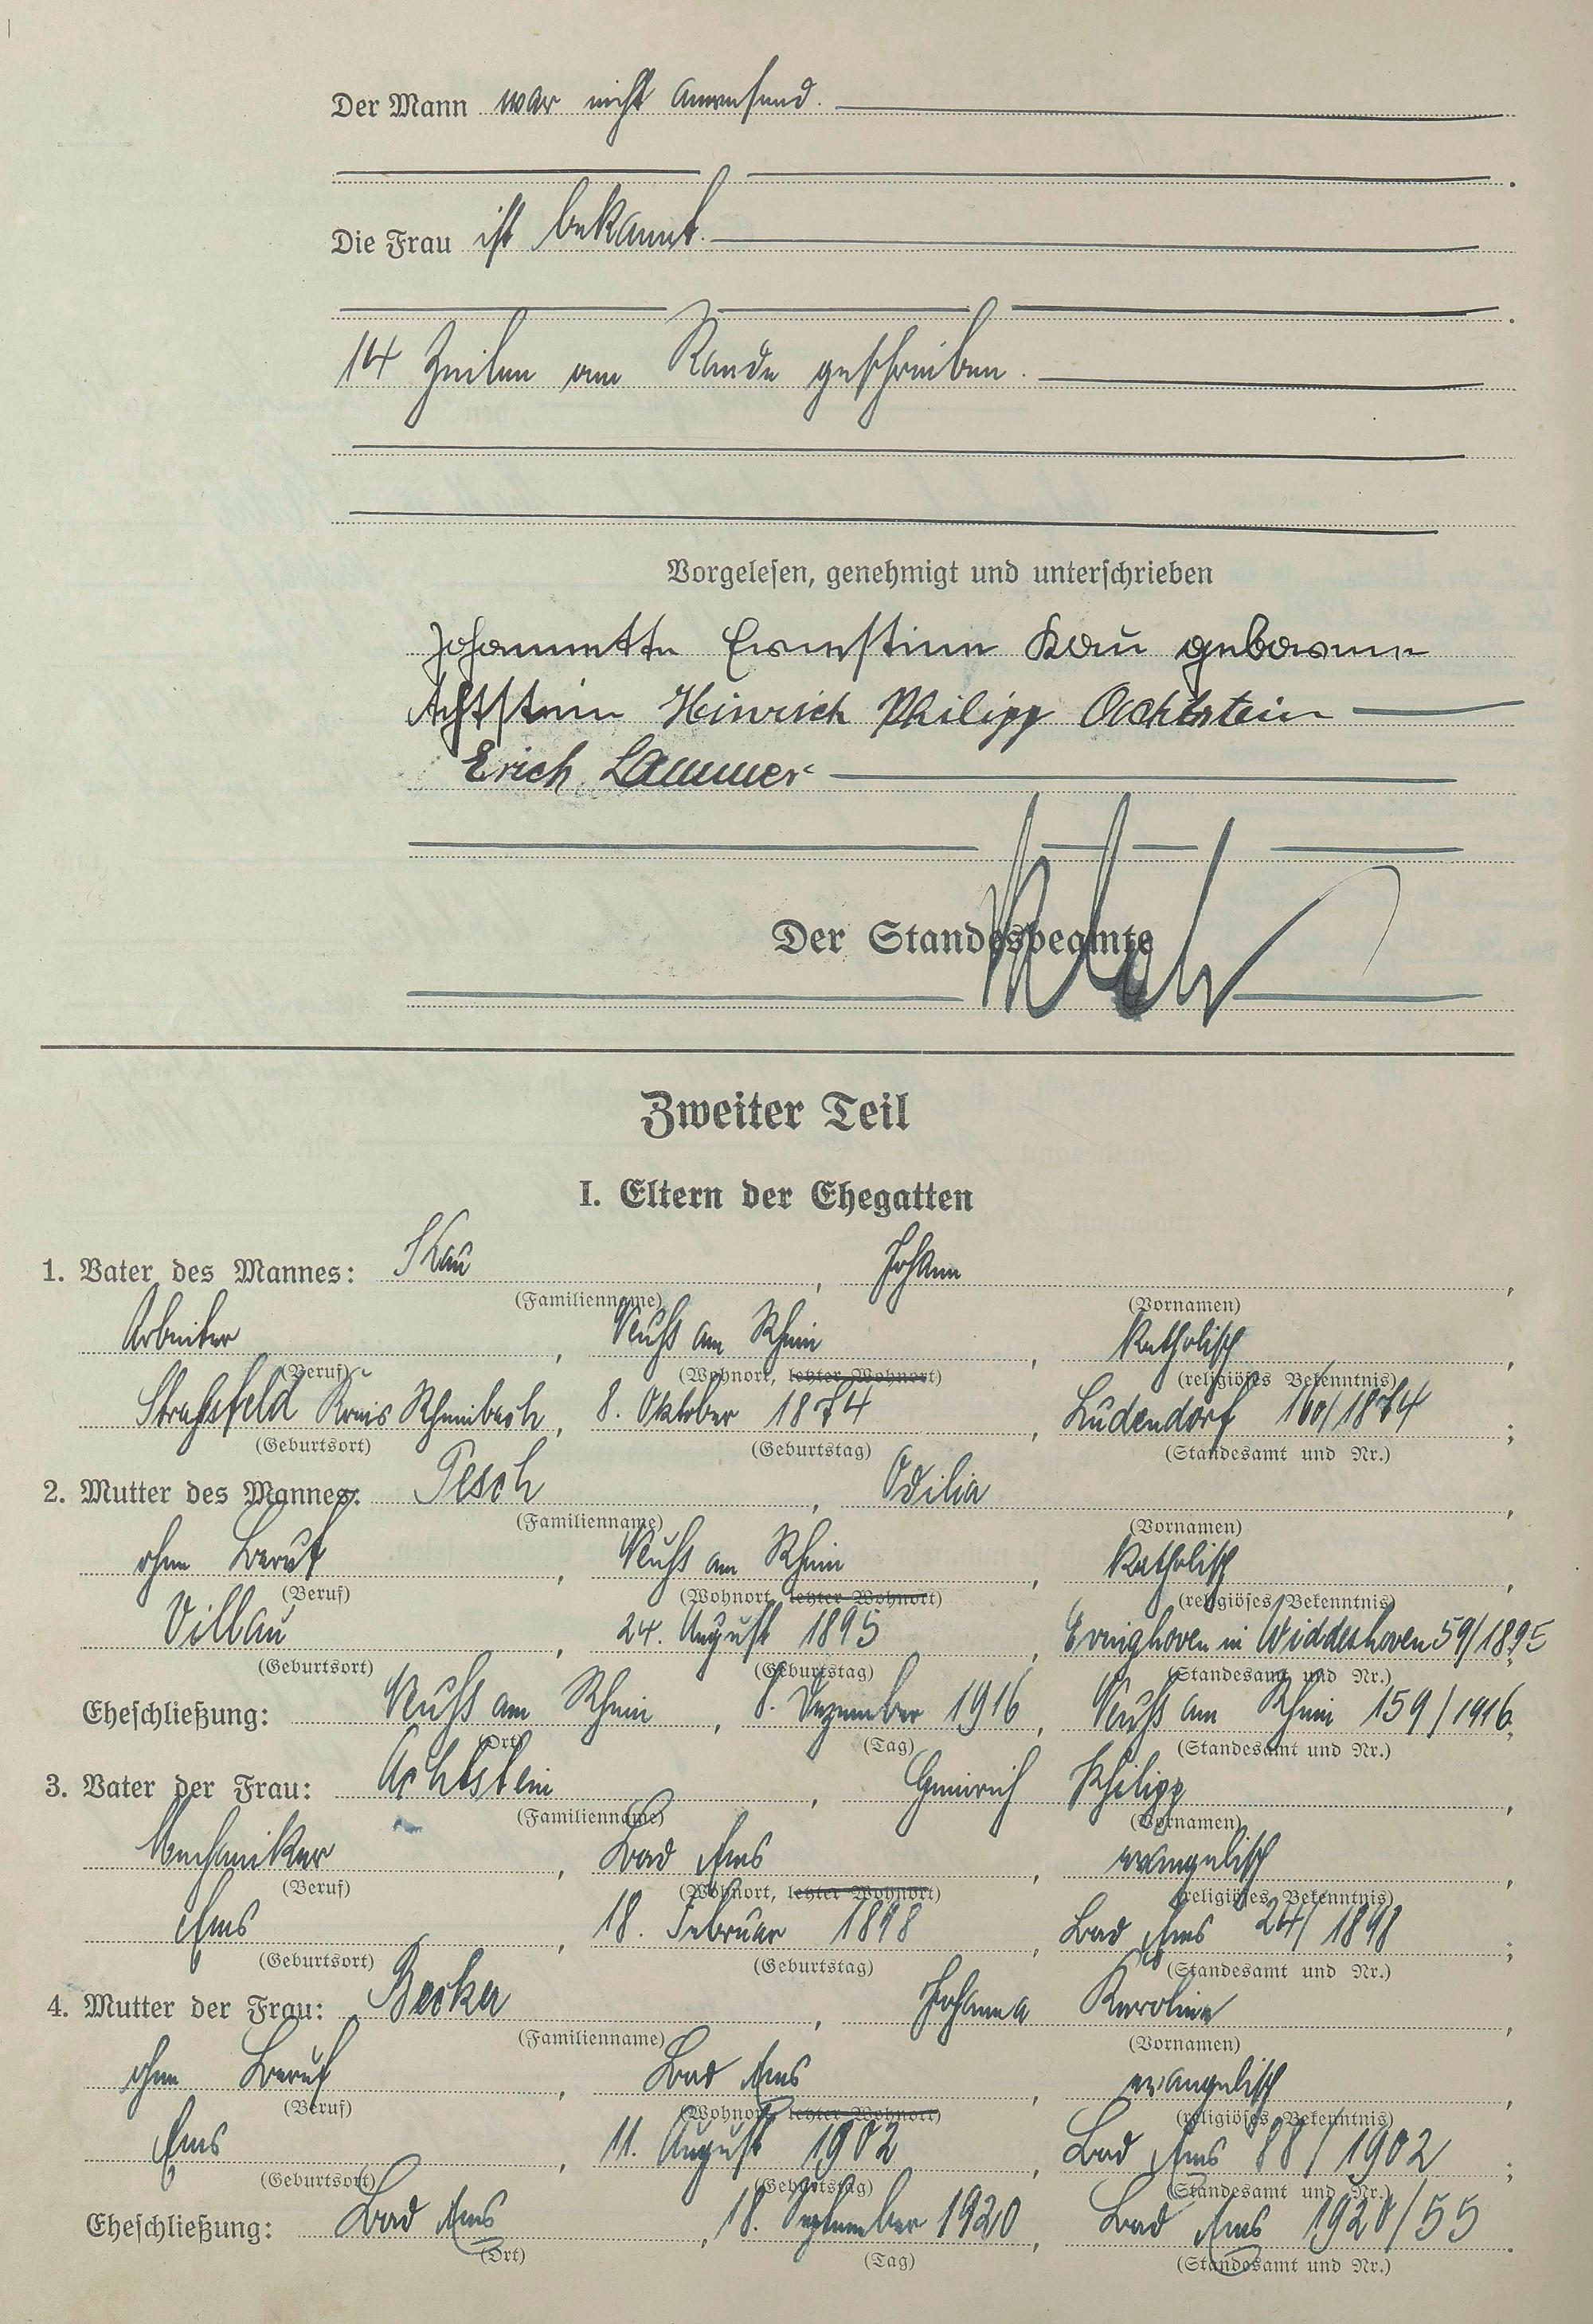 Der Mann war nicht anwesend.
Die Frau ist bekannt.
14 Zeilen am Rande geschrieben.
Vorgelesen, genehmigt und unterschrieben
Johannette Ernestine Kau geborene
Achtstein Heinrich Philipp Achtstein
Erich Lammer
Der Standesbeamte
Zweiter Teil
I. Eltern der Ehegatten
1. Vater des Mannes: Kau, Johann,
(Familienname) (Vornamen)
Arbeiter, Neuß am Rhein, katholisch,
(Beruf) (Wohnort, letzter Wohnort) (religiöses Bekenntnis)
Straßfeld Kreis Rheinbach, 8. Oktober 1874, Ludendorf 160/1874;
(Geburtsort) (Geburtstag) (Standesamt und Nr.)
2. Mutter des Mannes: Pesch, Odilia,
(Familienname) (Vornamen)
ohne Beruf, Neuß am Rhein, katholisch,
(Beruf) (Wohnort, letzter Wohnort) (religiöses Bekenntnis)
Villau, 24. August 1895, Evinghoven in Widdeshoven 59/1895
(Geburtsort) (Geburtstag) (Standesamt und Nr.)
Eheschließung: Neuß am Rhein, 8. Dezember 1916, Neuß am Rhein 159/1916;
(Ort) (Tag) (Standesamt und Nr.)
3. Vater der Frau: Achtstein, Heinrich Philipp,
(Familienname) (Vornamen)
Mechaniker, Bad Ems, evangelisch,
(Beruf) (Wohnort, letzter Wohnort) (religiöses Bekenntnis)
Ems, 18. Februar 1898, Bad Ems 24/1898;
(Geburtsort) (Geburtstag) (Standesamt und Nr.)
4. Mutter der Frau: Becker, Johanna Karoline,
(Familienname) (Vornamen)
ohne Beruf, Bad Ems, evangelisch,
(Beruf) (Wohnort, letzter Wohnort) (religiöses Bekenntnis)
Ems, 11. August 1902, Bad Ems 88/1902;
(Geburtsort) (Geburtstag) (Standesamt und Nr.)
Eheschließung: Bad Ems, 18. September 1920, Bad Ems 1920/55.
(Ort) (Tag) (Standesamt und Nr.)